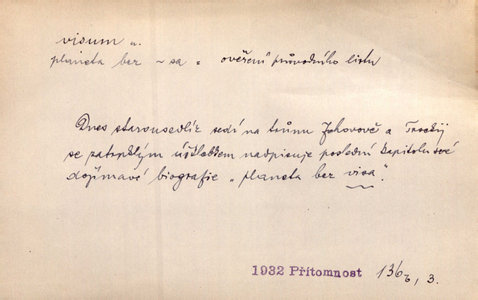 visum n.
planeta bez ~ sa = ověření průvodního listu
Dnes starousedlík sedí na trůnu Jehovově a Trockij
se zatrpklým úšklebkem nadpisuje poslední kapitolu své
dojímavé biografie „planeta bez visa".
1932 Přítomnost 136, 3.